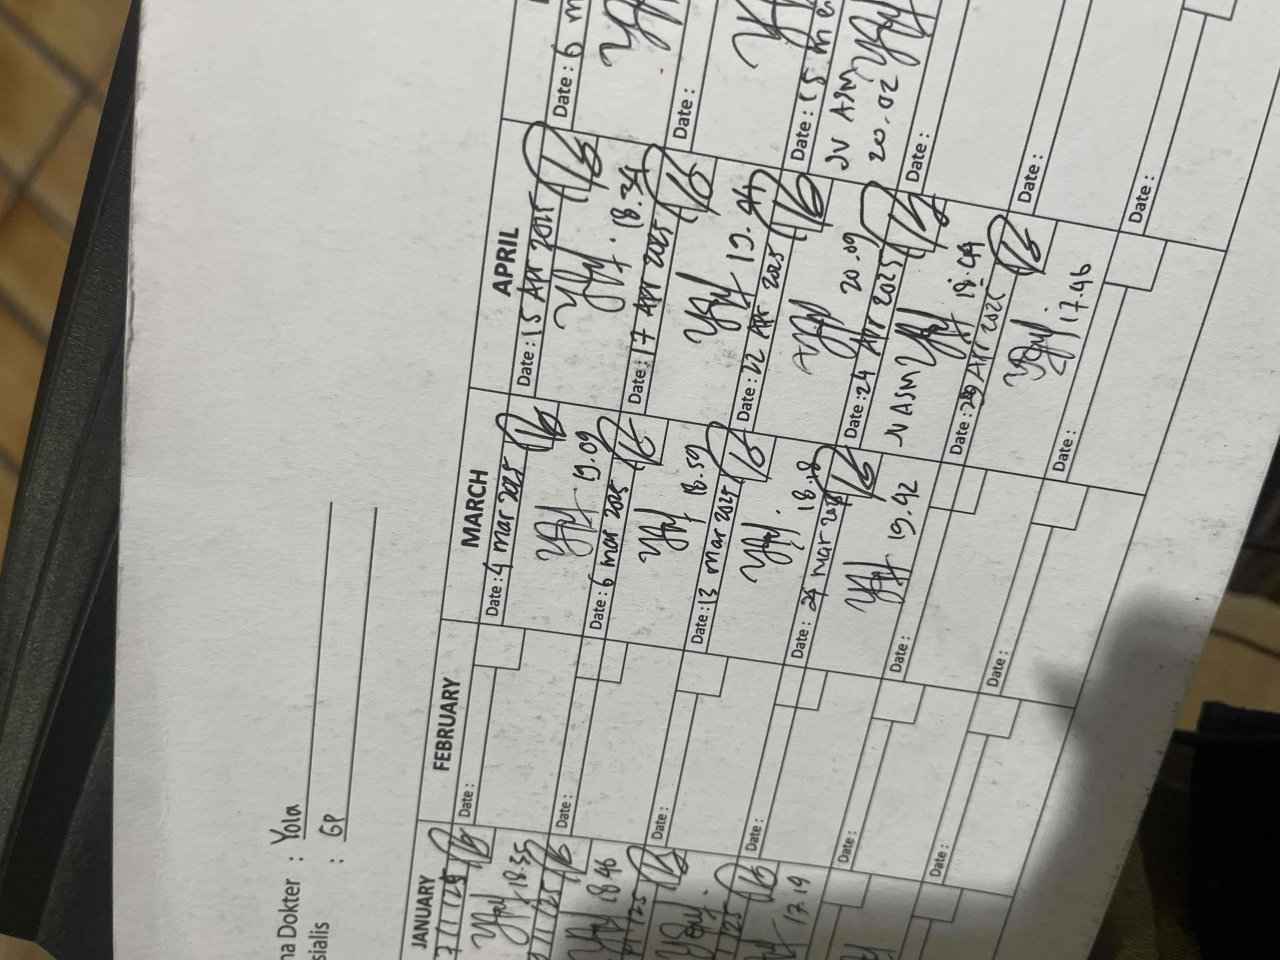 na Dokter : Yola
sialis : GP
JANUARY
18.55
18.46
17.19
FEBRUARY
Date :
Date :
Date :
Date :
Date :
Date :
MARCH
Date : 4 mar 2025
19.09
Date : 6 mar 2025
18.59
Date : 13 mar 2025
18.48
Date : 24 mar 2025
19.42
Date :
Date :
APRIL
Date : 15 Apr 2025
18.24
Date : 17 Apr 2025
19.44
Date : 22 Apr 2025
20.09
Date : 24 Apr 2025
18.44
Date : 29 Apr 2025
17.46
Date :
Date : 6 m
Date :
Date : 15 me
20.02
Date :
Date :
Date :